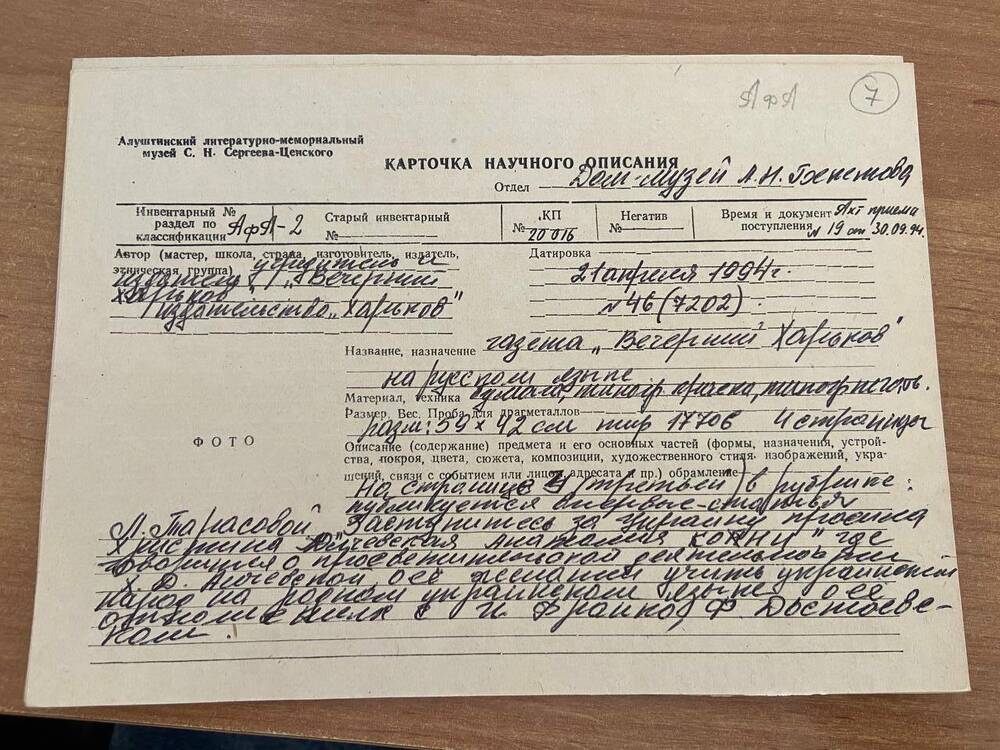 АфА 7
Алуштинский литературно-мемориальный
музей С. Н. Сергеева-Ценского
КАРТОЧКА НАУЧНОГО ОПИСАНИЯ
Отдел Дом-музей А.Н. Бекетова
Инвентарный №
раздел по
классификации АфА-2
Старый инвентарный
№
КП
№ 20016
Негатив
№
Время и документ Акт приема
поступления № 19 от 30.09.94.
Автор (мастер, школа, страна, изготовитель, издатель,
этническая группа) учредитель и
издатель "Вечерний
Харьков"
издательство "Харьков"
Датировка
21 апреля 1994 г.
№ 46 (7202).
Название, назначение газета "Вечерний Харьков"
на русском языке
Материал, техника бумага, типогр краска, типогр изготов.
Размер. Вес. Проба для драгметаллов
разм: 59 × 42 см тир 17706 4 страницы
ФОТО
Описание (содержание) предмета и его основных частей (формы, назначения, устрой-
ства, покроя, цвета, сюжета, композиции, художественного стиля, изображений, укра-
шений, связи с событием или лицом, адресата и пр.) обрамление
На странице 3 (третьей) в рубрике:
публикуется впервые статья
Л. Тарасовой "Заступитесь за Украину просила
Христина Алчевская" где
говорится о просветительской деятельности
Х. Д. Алчевской о её желании учить украинский
народ на родном украинском языке о её
отношениях с И Франко, Ф. Достоевс-
ким.